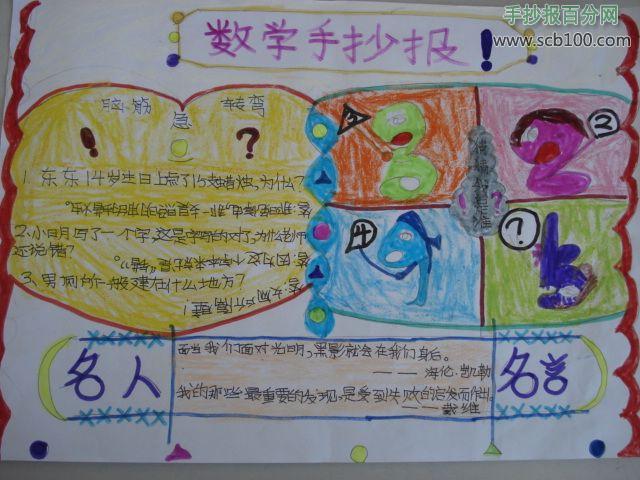 手抄报百分网
www.scb100.com
数学手抄报!
脑筋急转弯
! ?
1. 东东14岁生日上点了15支蜡烛,为什么?
2.小明写了一个字,这是字写的对了,为什么老师
还说错?
答:因为这个字本来就是“错”。
3、男厕所一般建在什么地方?
答:女厕所隔壁!
3
2
4
?
名人
名言
当我们面对光明,黑影就会在我们身后。
——海伦.凯勒
我的那些最重要的发现,是受到失败的启发而作出。
——戴维